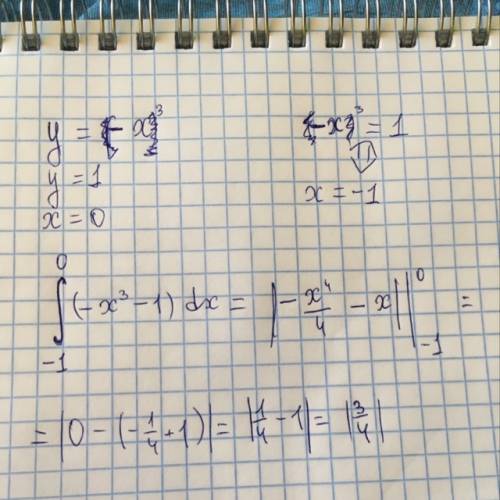 y = - x³
-x³ = 1
y = 1
x = 0
⇓
x = -1
∫₋₁⁰ (-x³ - 1) dx = |-x⁴/4 - x| |₋₁⁰ =
= |0 - (-1/4 + 1)| = |1/4 - 1| = |3/4|